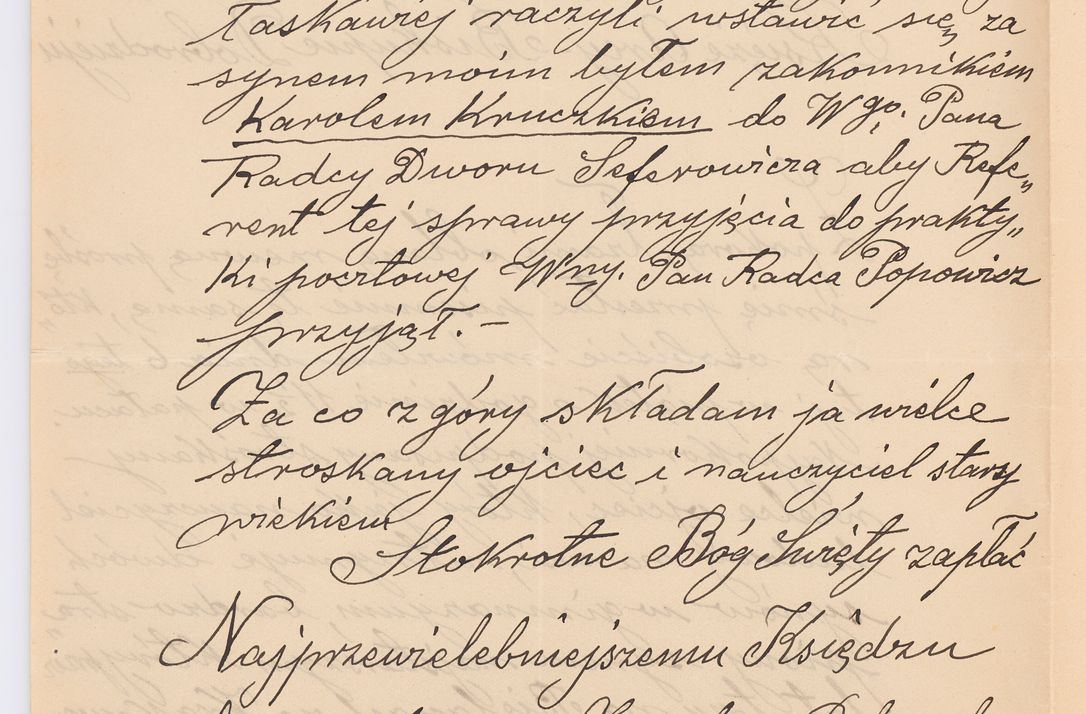 Łaskawiej raczyli wstawić się za
synem moim byłem zakonnikiem
Karolem Kruczkiem do Wgo. Pana
Radcy Dworu Seferowicza aby Refe„
rent tej sprawy przyjęcia do prakty„
ki pocztowej Wny. Pan Radca Popowicz
przyjął. –
Za co z góry składam ja wielce
stroskany ojciec i nauczyciel stary
wiekiem
Stokrotne Bóg Święty zapłać
Najprzewielebniejszemu Księdzu